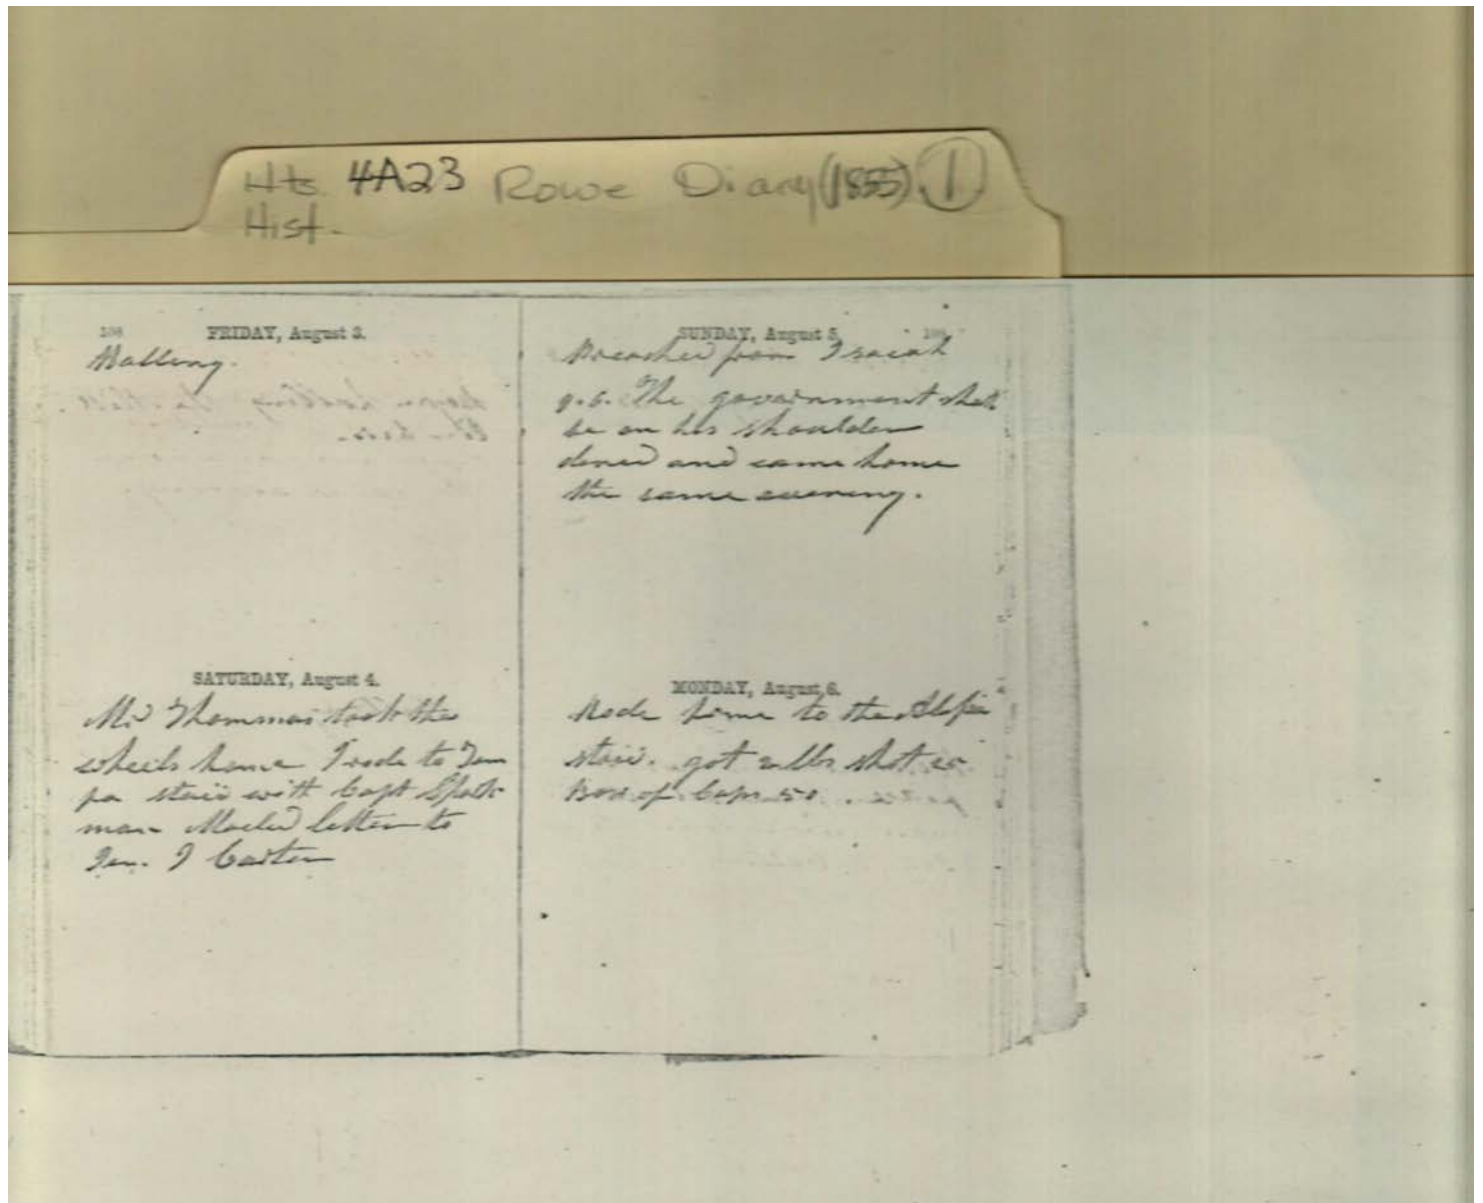 Hts 4A23 Rowe Diary (1855) 1
Hist.
188
FRIDAY, August 3.
Halling.
SATURDAY, August 4.
Mr Thommas took the
wheels home I rode to Tam
pa staie with Capt Spark
man Maeled letter to
Jen. J Carter
SUNDAY, August 5.
Preached from Isaiah
9.6. The government shall
be on his shoulder
dined and came home
the same evening.
MONDAY, August 6.
Rode home to the
got 2 lbs shot
Box of Caps 50